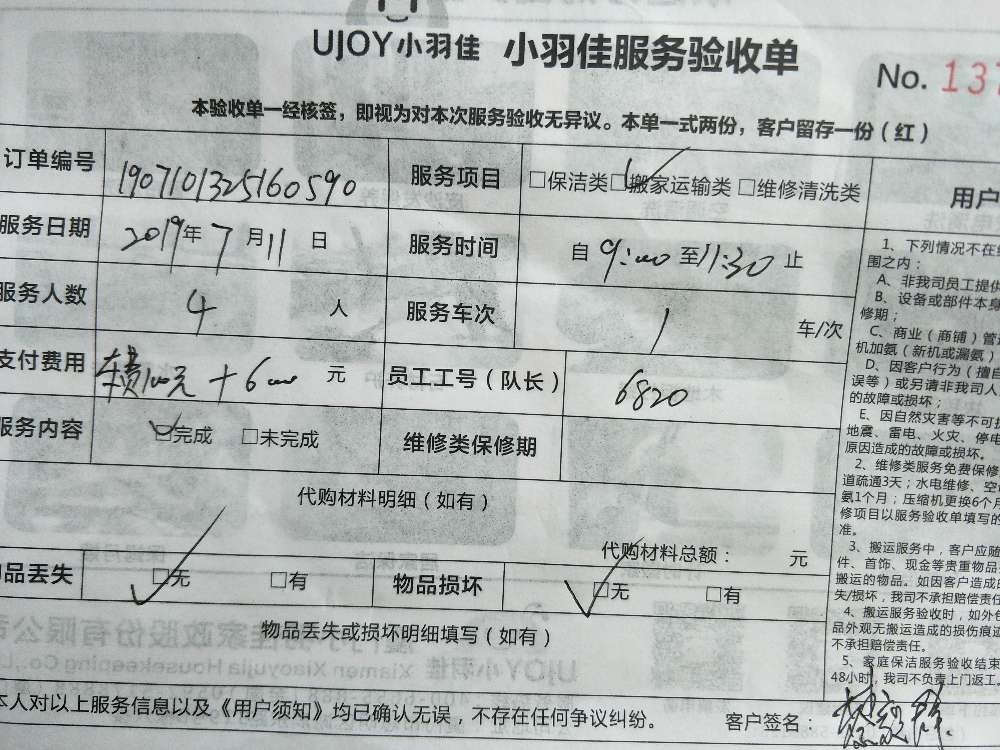 UJOY小羽佳 小羽佳服务验收单
No. 137
本验收单一经核签，即视为对本次服务验收无异议。本单一式两份，客户留存一份（红）
订单编号 1907101325160590 服务项目 □保洁类 □搬家运输类 □维修清洗类
用户
服务日期 2019年7月11日 服务时间 自9:00至11:30止
服务人数 4人 服务车次 1车/次
支付费用 100元+600元 员工工号（队长） 6820
服务内容 □完成 □未完成 维修类保修期
代购材料明细（如有）
代购材料总额： 元
品丢失 □无 □有 物品损坏 □无 □有
物品丢失或损坏明细填写（如有）
本人对以上服务信息以及《用户须知》均已确认无误，不存在任何争议纠纷。 客户签名：
1、下列情况不在
围之内：
A、非我司员工提供
B、设备或部件本身
修期；
C、商业（商铺）管
机加氨（新机或漏氨）
D、因客户行为（擅自
误等）或另请非我司人
的故障或损坏；
E、因自然灾害等不可
地震、雷电、火灾、停电
原因造成的故障或损坏。
2、维修类服务免费保修
道疏通3天；水电维修、空
氨1个月；压缩机更换6个月
修项目以服务验收单填写的
准。
3、搬运服务中，客户应
件、首饰、现金等贵重物品
搬运的物品。如因客户造成
失/损坏，我司不承担赔偿责任
4、搬运服务验收时，如外包
品外观无搬运造成的损伤痕迹
不承担赔偿责任。
5、家庭保洁服务验收结束
48小时，我司不负责上门返工。